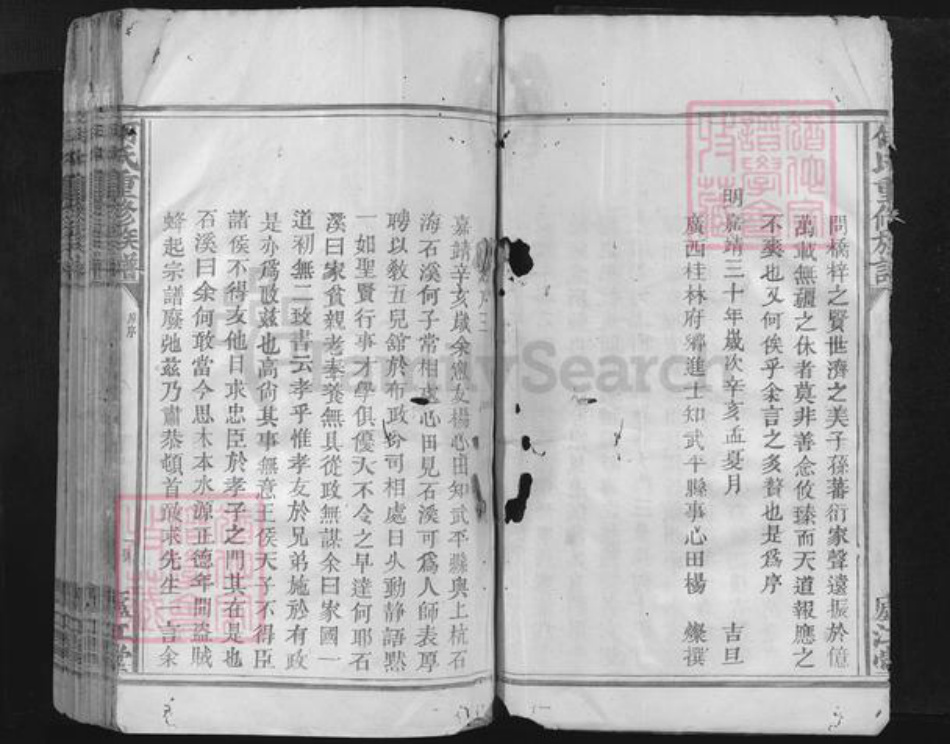 問橋梓之賢世濟之美子孫蕃衍家聲遠振於億
萬載無疆之休者莫非善念攸臻而天道報應之
不爽也又何俟乎余言之多贅也是爲序
明嘉靖三十年歲次辛亥孟夏月 吉旦
廣西桂林府鄉進士知武平縣事心田楊 爕撰
嘉靖辛亥歲余窻友楊心田知武平縣與上杭石
海石溪何子常相 心田見石溪可爲人師表厚
聘以敎五兒舘於布政分司相處日久動静語默
一如聖賢行事才學俱優大不令之早達何耶石
溪曰家貧親老奉養無具從政無謀余曰家國一
道初無二致書云孝乎惟孝友於兄弟施於有政
是亦爲政兹也高尙其事無意王侯天子不得臣
諸侯不得友他日求忠臣於孝子之門其在是也
石溪曰余何敢當今思木本水源正德年間盜賊
蜂起宗譜廢弛兹乃肅恭頓首敢求先生一言余
氏重修族譜
房序
廬江堂
氏重修族譜
廬江堂
FamilySearch